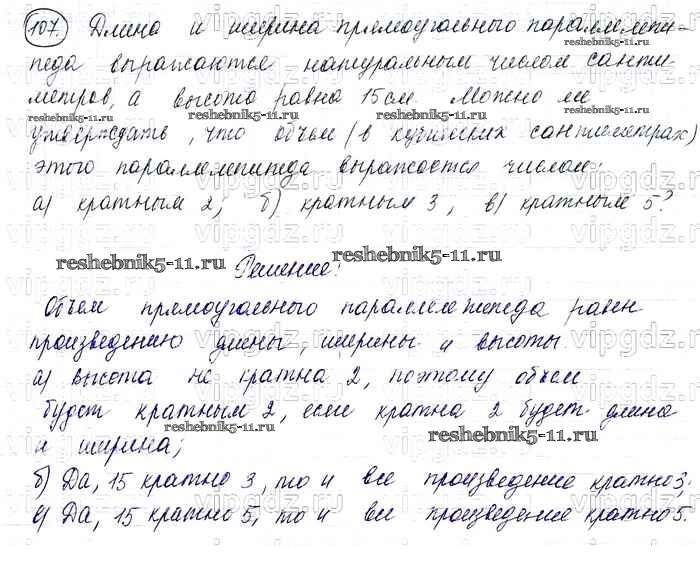 107. Длина и ширина прямоугольного параллелепи-
педа выражаются натуральным числом санти-
метров, а высота равна 15 см. Можно ли
утверждать, что объем (в кубических сантиметрах)
этого параллелепипеда выражается числом:
а) кратным 2; б) кратным 3, в) кратным 5?
reshebnik5-11.ru
reshebnik5-11.ru
reshebnik5-11.ru
reshebnik5-11.ru
reshebnik5-11.ru
reshebnik5-11.ru
Решение:
Объем прямоугольного параллелепипеда равен
произведению длины, ширины и высоты.
а) высота не кратна 2, поэтому объем
будет кратным 2, если кратна 2 будет длина
и ширина;
reshebnik5-11.ru
б) Да, 15 кратно 3, то и все произведение кратно 3;
в) Да, 15 кратно 5, то и все произведение кратно 5.
vipgdz.ru